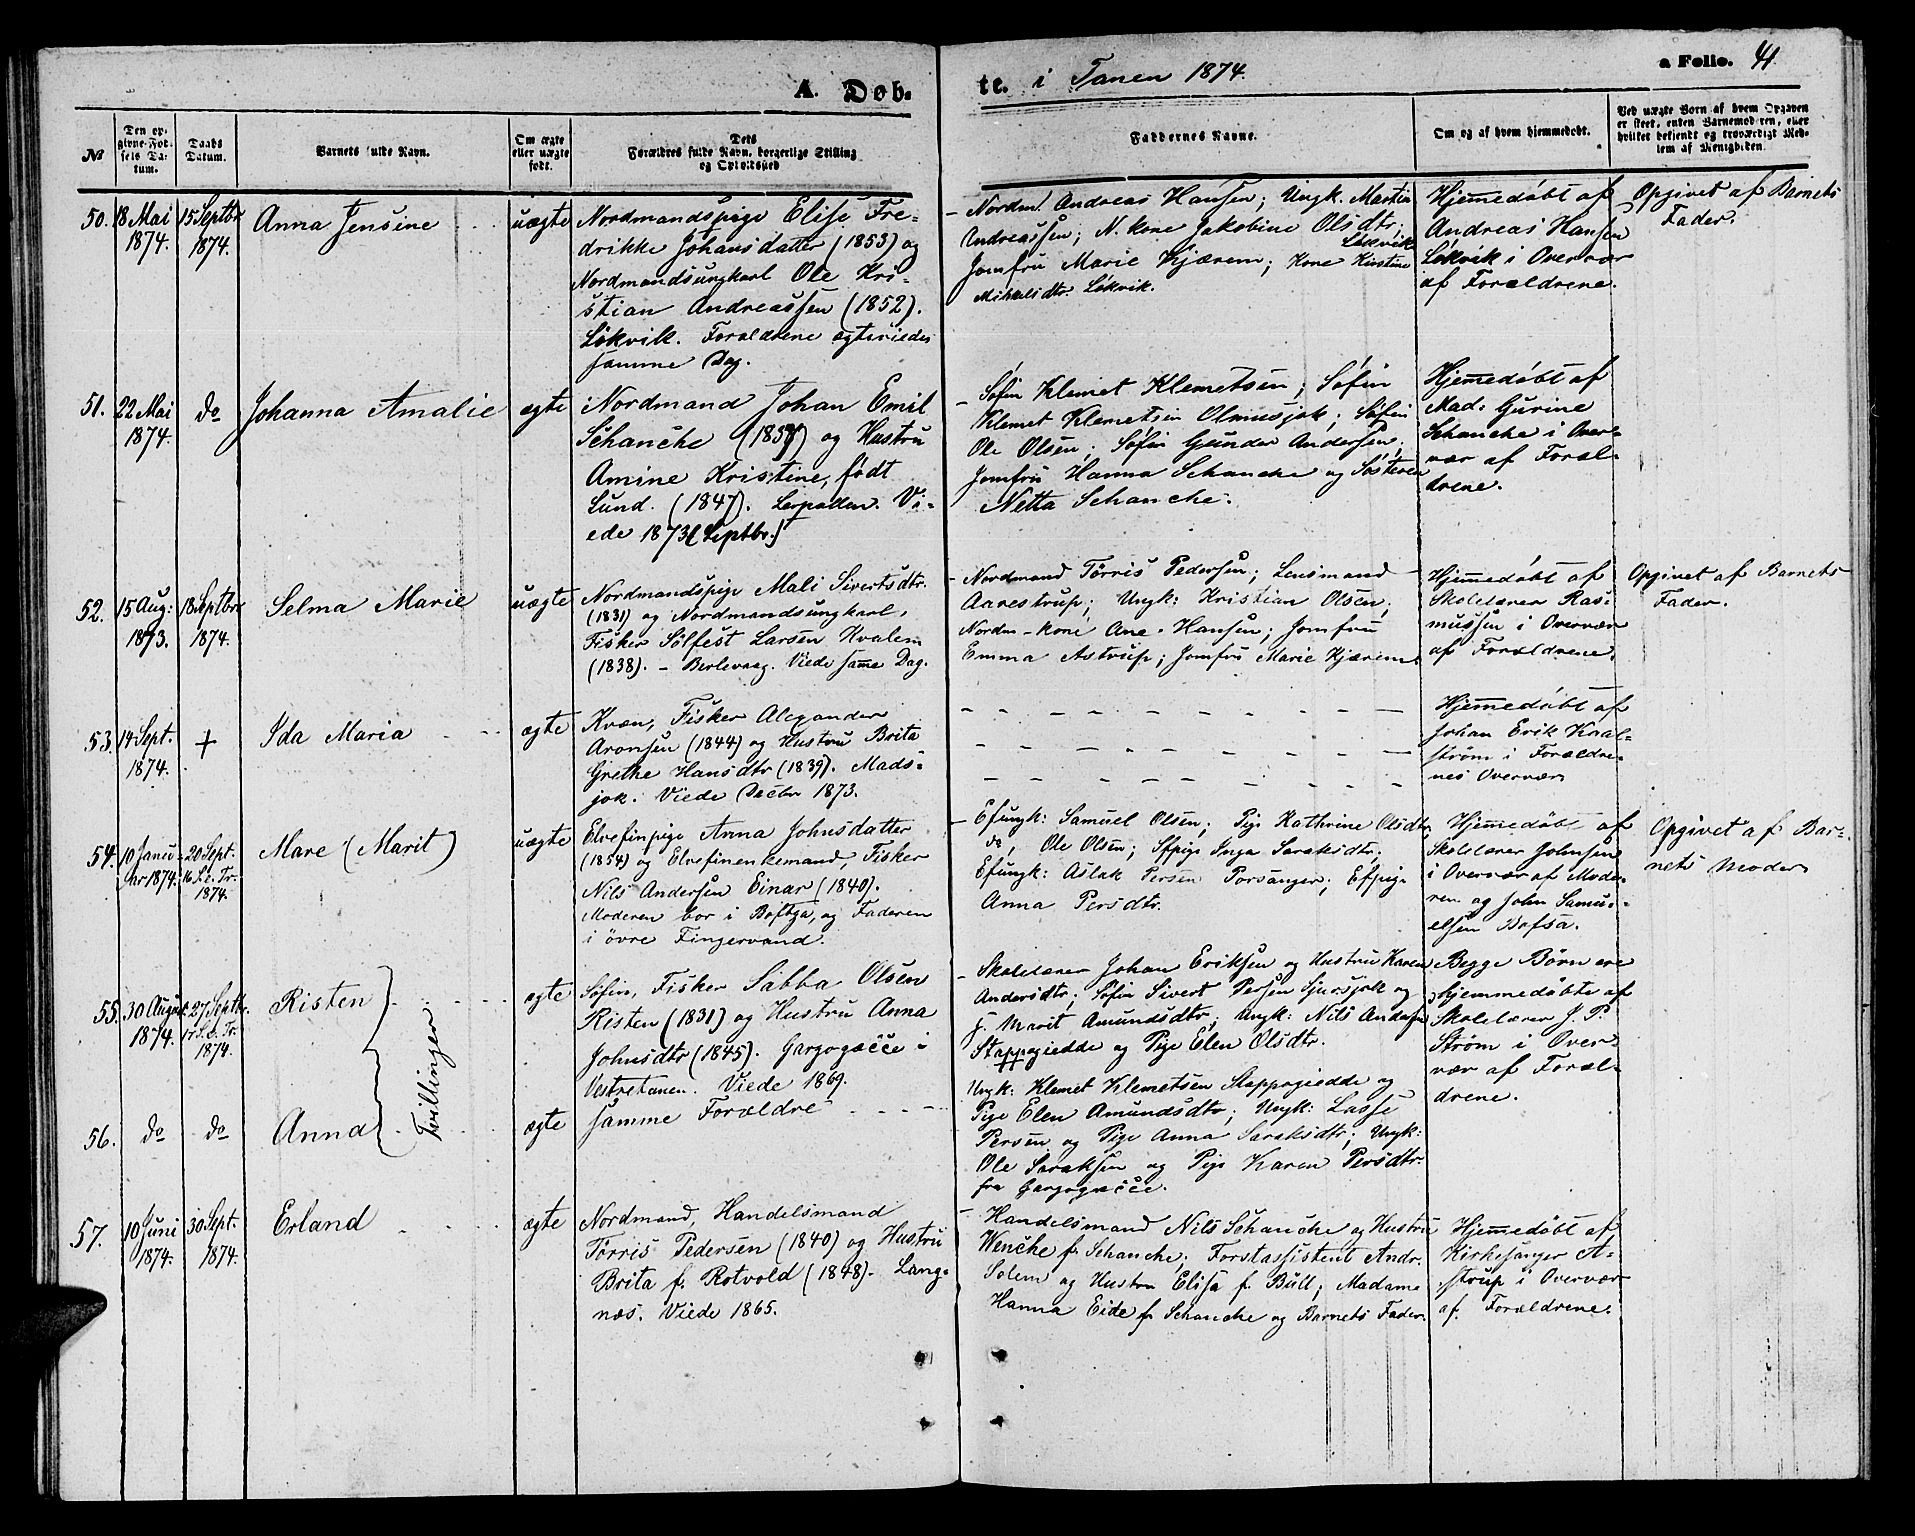 A. Døb-
te. i Tanen 1874.
a Folio. 41
No
Den op-
givne Fød-
sels Da-
tum.
Daabs
Datum.
Barnets fulde Navn.
Om ægte
eller uægte
født.
Dets
Forældres fulde Navn, borgerlige Stilling
og Opholdssted
Faddernes Navne.
Om og af hvem hjemmedøbt.
Ved uægte Børn af hvem Opgaven
er skeet, enten Barnemoderen, eller
hvilket bekjendt og troværdigt Med-
lem af Menigheden.
50.
18 Mai
1874.
15 Septbr
1874.
Anna Jensine
uægte
Nordmandspige Elise Fre-
drikke Johansdatter (1853) og
Nordmandsungkarl Ole Kri-
stian Andreassen (1852).
Løkvik. Forældrene ægteviedes
samme Dag.
Nordm. Andreas Hansen; Ungk. Martin
Andreassen; N. kone Jakobine Olsdtr. Løkvik
Jomfru Marie Kjærem; Kone Kirstine
Mikkelsdtr. Løkvik.
Hjemmedøbt af
Andreas Hansen
Løkvik i Overvær
af Forældrene.
Opgivet af Barnets
Fader.
51.
22 Mai
1874.
do
Johanna Amalie
ægte
Nordmand Johan Emil
Schanche (1837) og Hustru
Amine Kristine, født
Lund. (1847). Lerpollen. Vi-
ede 1873 (Septbr.)
Søfin Klemet Klemetsen; Søfin
Klemet Klemetsen Olmusjok; Søfin
Ole Olsen; Søfin Gunder Andersen;
Jomfru Hanna Schanche og Søsteren
Netta Schanche.
Hjemmedøbt af
Mad: Gurine
Schanche i Over-
vær af Foræl-
drene.
52.
15 Aug:
1873.
18 Septbr
1874.
Selma Marie
uægte
Nordmandspige Mali Sivertsdtr.
(1831) og Nordmandsungkarl,
Fisker Sølfest Larsen Kvalem
(1838). - Berlevaag. Viede same Dag.
Nordmand Tørris Pedersen; Lensmand
Aarestrup; Ungk: Kristian Olsen;
Nordm-kone Ane Hansen; Jomfru
Emma Astrup; Jomfru Marie Kjærem.
Hjemmedøbt af
Skolelærer Ras-
mussen i Overvær
af Forældrene.
Opgivet af Barnets
Fader.
53.
14 Sept.
1874.
+
Ida Maria
ægte
Kvæn, Fisker Alexander
Aronsen (1844) og Hustru Brita
Grethe Hansdtr (1839). Mads-
jok. Viede Decbr 1873.
Hjemmedøbt af
Johan Erik Knal-
strøm i Forældre-
nes Overvær
54.
10 Janu-
ar 1874.
20 Sept.
16 S. e. Tr.
1874.
Mare (Marit)
uægte
Elvefinpige Anna Johnsdatter
(1854) og Elvefinenkemand, Fisker
Nils Andersen Einar (1840).
Moderen bor i Boftsa, og Faderen
i øvre Fingervand.
Efungk: Samuel Olsen; Pige Kathrine Olsdtr
do, Ole Olsen; Sfpige Inga Saraksdtr;
Efungk: Aslak Persen Porsanger; Efpige
Anna Persdtr.
Hjemmedøbt af
Skolelærer Johnsen
i Overvær af Mode-
ren og John Samu-
elsen Bofsa.
Opgivet af Bar-
nets Moder
55.
30 August
1874.
27 Septbr.
17 S. e. Tr.
1874.
Risten
Tvillinger
ægte
Søfin, Fisker Sabba Olsen
Risten (1831) og Hustru Anna
Johnsdtr (1845). Gargogæcce i
Vestretanen. Viede 1869.
Skolelærer Johan Eriksen og Hustru Karen
Andersdtr; Søfin Sivert Persen Sjursjok og
h. Marit Amundsdtr; Ungk: Nils Andersen
Stappogiedde og Pige Elen Olsdtr.
Begge Børn ere
hjemmedøbte af
Skolelærer J. P.
Strøm i Over-
vær af Foræl-
drene.
56.
do
do
Anna
ægte
samme Forældre
Ungk: Klemet Klemetsen Stappogiedde og
Pige Elen Amundsdtr; Ungk: Lasse
Persen og Pige Anna Saraksdtr; Ungk:
Ole Saraksen og Pige Karen Persdtr.
fra Gargogæcce.
57.
10 Juni
1874.
30 Sept.
1874.
Erland
ægte
Nordmand, Handelsmand
Tørris Pedersen (1840) og Hustru
Brita f. Rotvold (1848). Lang-
næs. Viede 1865.
Handelsmand Nils Schanche og Hustru
Wenche f. Schanche; Forstassistent Andr.
Solem og Hustru Elisa f. Bull; Madame
Hanna Eide f. Schanche og Barnets Fader.
Hjemmedøbt af
Kirkesanger A-
strup i Overvær
af Forældrene.